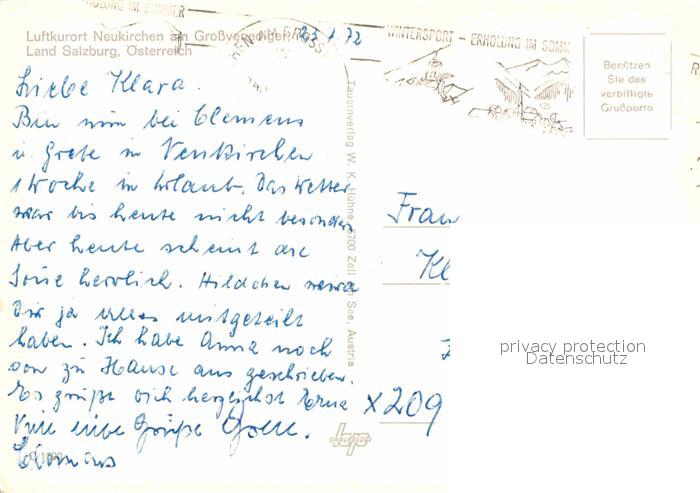 Luftkurort Neukirchen am Großvenediger
Land Salzburg, Österreich
23.1.72
WINTERSPORT - ERHOLUNG IM SOMM
Benützen
Sie das
verbilligte
Grußporto
Liebe Klara.
Bin nun bei Clemens
u. Grete in Neukirchen
1 Woche in Urlaub. Das Wetter
war bis heute nicht besonders
Aber heute scheint die
Sonne herrlich. Hildchen
Dir ja alles mitgeteilt
haben. Ich habe Anna noch
von zu Hause aus geschrieben.
Es grüßt dich herzlichst Erna
Viele liebe Grüße Grete.
Clemens
Tauernverlag W. K. Hühne, 5700 Zell am See, Austria
Frau
Kl
x209
privacy protection
Datenschutz